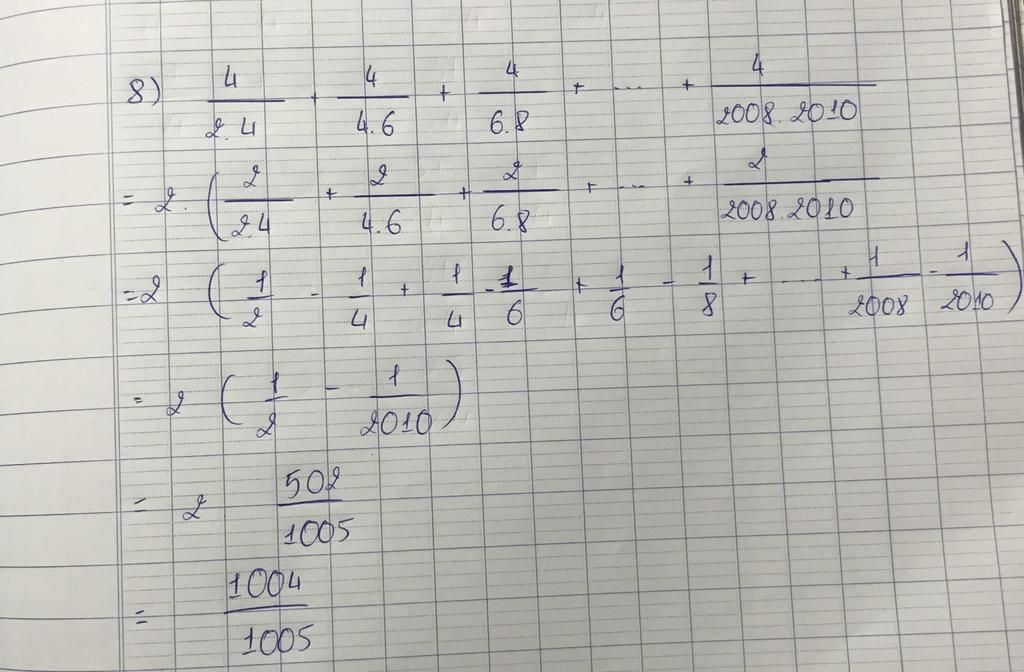 8) 4/2.4 + 4/4.6 + 4/6.8 + .... + 4/2008.2010
= 2. (2/2.4 + 2/4.6 + 2/6.8 + ... + 2/2008.2010
=2 (1/2 - 1/4 + 1/4 - 1/6 + 1/6 - 1/8 + ..... + 1/2008 - 1/2010)
= 2 (1/2 - 1/2010)
= 2 502/1005
= 1004/1005